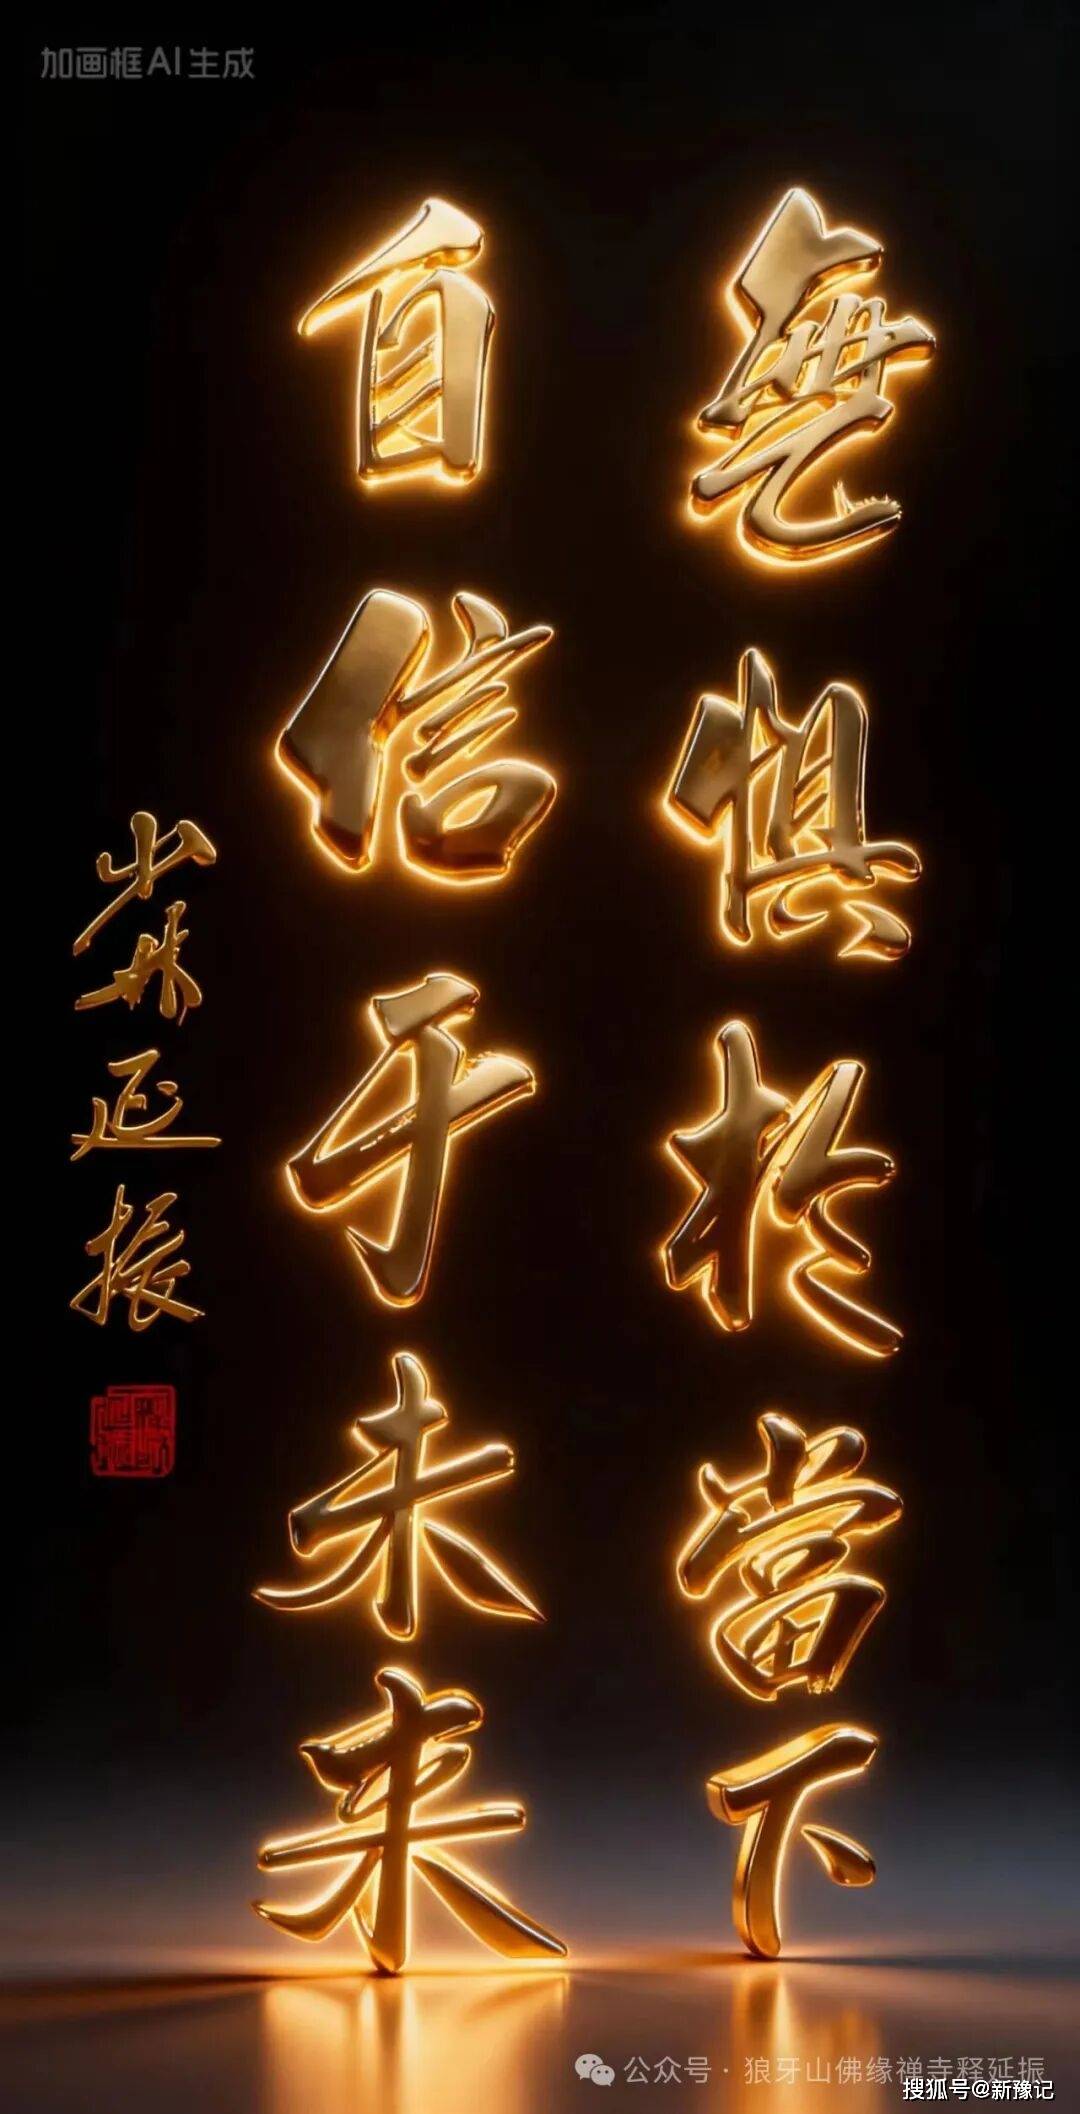 加画框AI生成
無惧於當下
自信于未来
少林延振
公众号·狼牙山佛缘禅寺释延振
搜狐号@新豫记